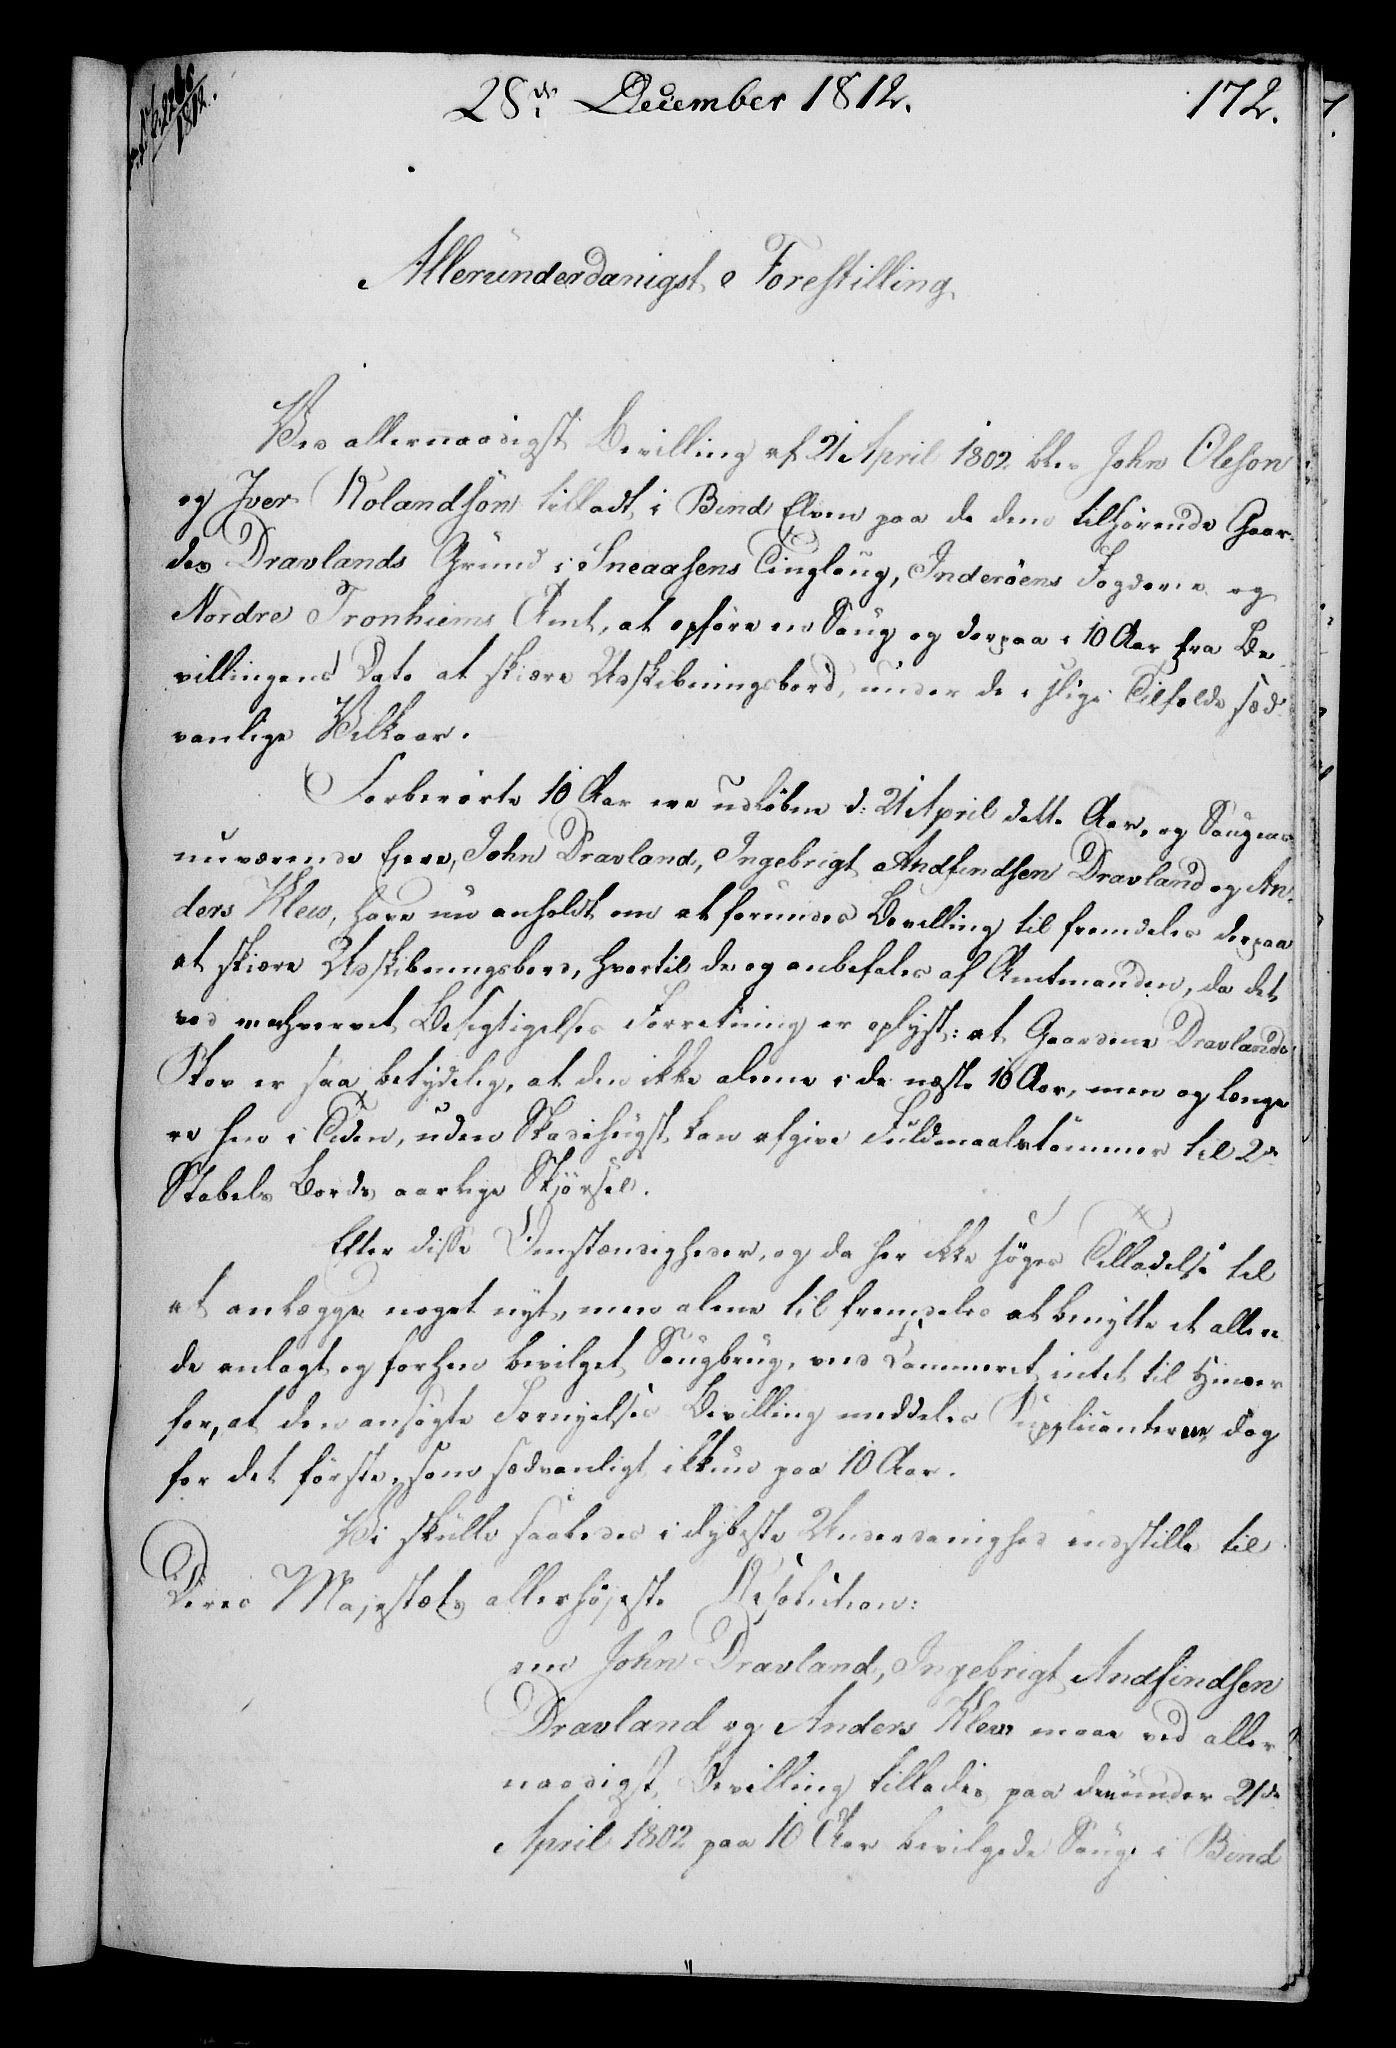 28de December 1812.
172.
1812.
Allerunderdanigst Forestilling
Ved allernaadigst Bevilling af 21 April 1802 blev John Oleson
og Iver Rolandsön tilladt, i Bind Elven paa de dem tilhörende Gaar-
des Dravlands Grund i Sneaasens Tinglaug, Inderöens Fogderie og
Nordre Tronhiems Amt, at opföre en Saug og derpaa i 10 Aar fra Be-
villingens Dato at skiære Udskibningsbord, under de i slige Tilfælde sæd-
vanlige Vilkaar.
Forberörte 10 Aar ere udlöbne d: 21 April dette Aar, og Saugens
nuværende Eiere, John Dravland, Ingebrigt Andfindsen Dravland og An-
ders Klew, have nu anholdt om at forundes Bevilling til fremdeles derpaa
at skiære Udskibningsbord, hvortil de og anbefales af Amtmanden, da det
ved erhvervet Besigtigelses Forretning er oplyst: at Gaardene Dravlands
Skov er saa betydelig, at den ikke alene i de næste 10 Aar, men og længe-
re hen i Tiden, uden Skovihugst, kan afgive Fuldmaalstömmer til 2de
Stabels Bords aarlige Skjörsel.
Efter disse Omstændigheder, og da her ikke söges Tilladelse til
at anlægge noget nyt, men alene til fremdeles at benytte et alle-
de anlagt og forhen bevilget Saugbrug, veed Kammeret intet til Hinder
for, at den ansögte Fornyelses Bevilling meddeles Supplicanterne, dog
for det förste, som sædvanligt, ikkun paa 10 Aar.
Vi skulle saaledes i dybeste Underdanighed indstille til
Deres Majestæts allerhöjeste Resolution:
om John Dravland, Ingebrigt Andfindsen
Dravland og Anders Klew maae ved aller-
naadigst Bevilling tillades, paa den under 21de
April 1802 paa 10 Aar bevilgede Saug i Bind